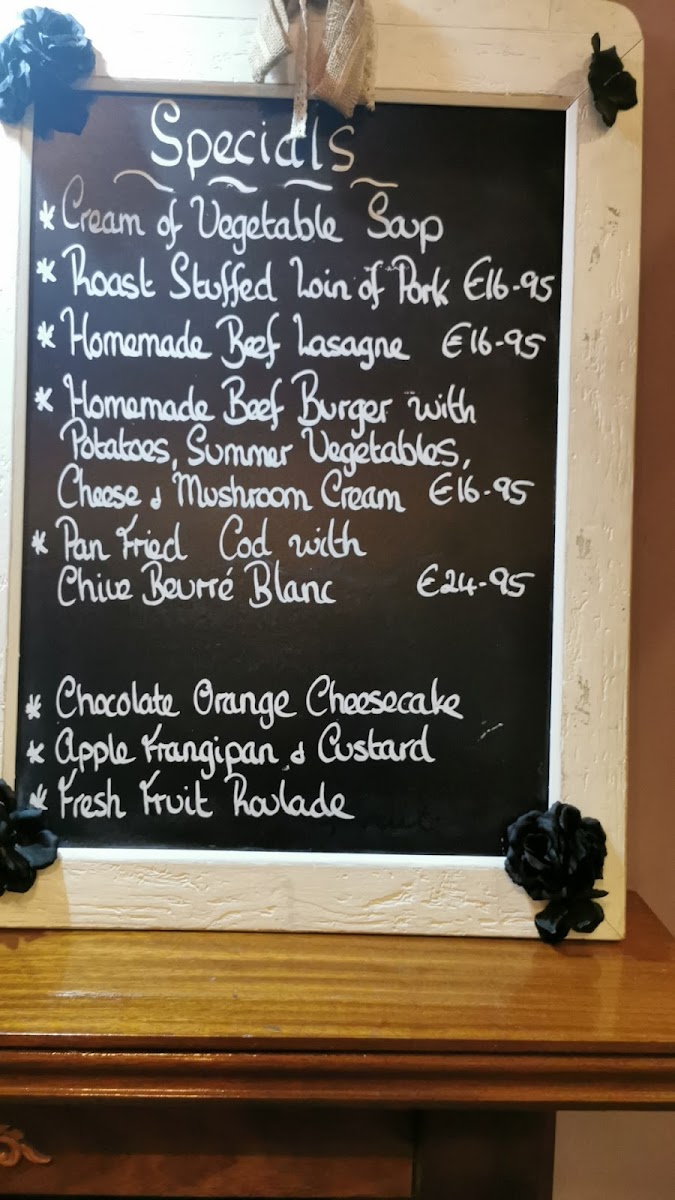 Specials
* Cream of Vegetable Soup
* Roast Stuffed Loin of Pork €16-95
* Homemade Beef Lasagne €16-95
* Homemade Beef Burger with
Potatoes, Summer Vegetables,
Cheese & Mushroom Cream €16-95
* Pan Fried Cod with
Chive Beurré Blanc €24-95
* Chocolate Orange Cheesecake
* Apple Frangipan & Custard
* Fresh Fruit Roulade